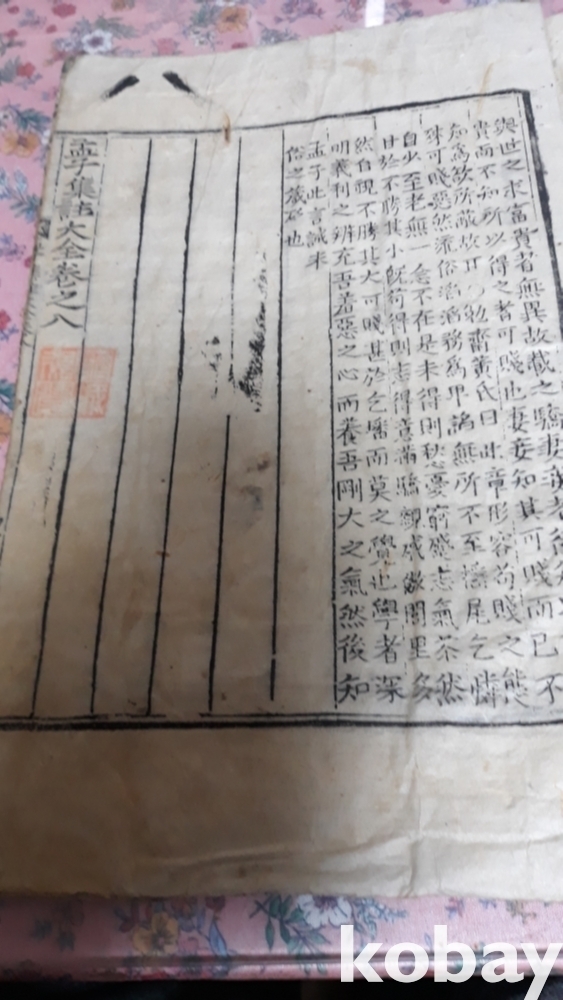 與世之求富貴者無異故載之驕妻
貴而不知所以得之者可賤也妻妾知其可賤而已不
知為欲所蔽故耳勉齋黃氏曰此章形容苟賤之態
可賤惡然流俗滔滔務為卑諂無所不至搖尾乞憐
自少至老無一念不在是未得則愁憂窮蹙志氣苶然
甘於不勝其小既苟得則志得意滿驕親戚傲閭里多
然自視不勝其大可賤甚於乞墦而莫之覺也學者深
明義利之辨充吾羞惡之心而養吾剛大之氣然後知
孟子此言誠末
俗之箴砭也
孟子集註大全卷之八
kobay